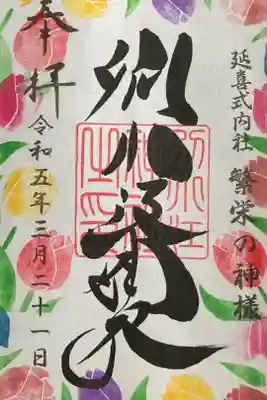 延喜式内社 繁栄の神様
別小江神社
奉拝
令和五年三月二十一日